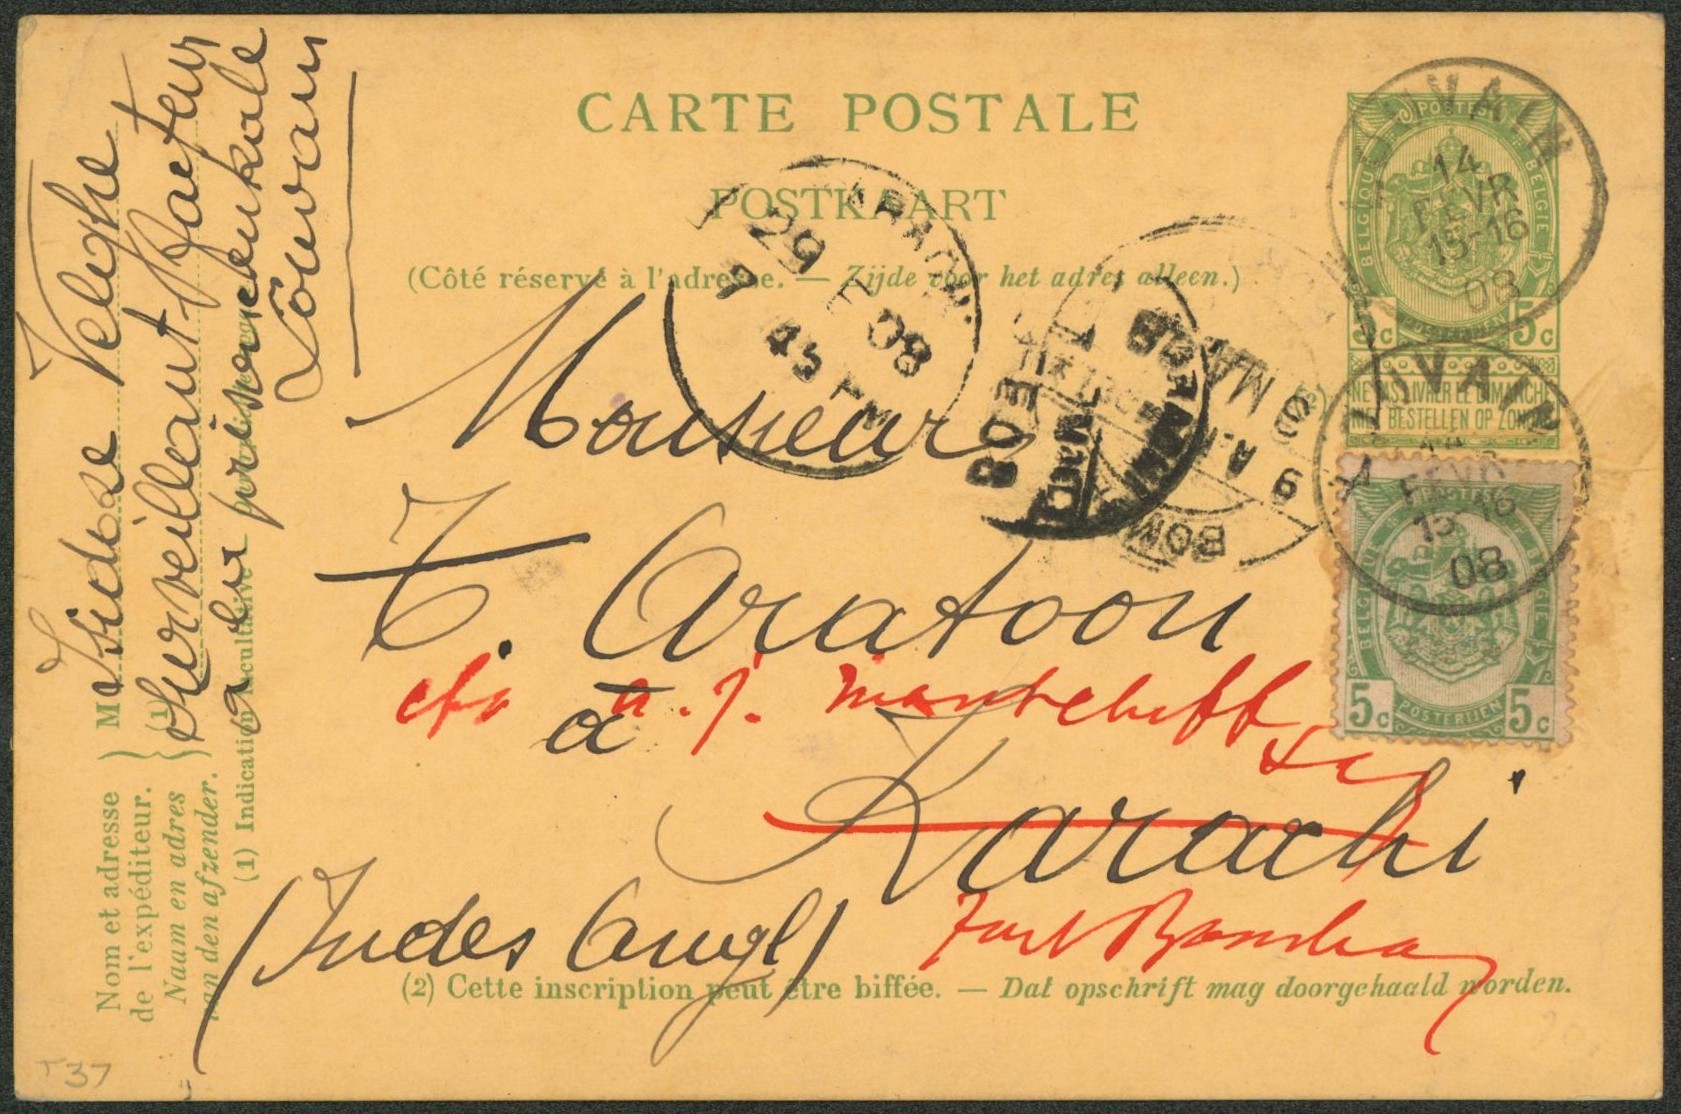 CARTE POSTALE
POSTKAART
(Côté réservé à l'adresse. — Zijde voor het adres alleen.)
Monsieur
T. Aratoon
c/o A. J.
à
Karachi
(Indes Angl)
Fort Bombay
(2) Cette inscription peut être biffée. — Dat opschrift mag doorgehaald worden.
Isidore Veleghe
Surveillant
à la prison
Louvain
Nom et adresse
de l'expéditeur.
Naam en adres
van den afzender.
(1)
(1) Indication facultative
LOUVAIN
14
FEVR
15-16
08
POSTES
BELGIQUE
BELGIE
5c 5c
POSTERIJEN
NE PAS LIVRER LE DIMANCHE
NIET BESTELLEN OP ZONDAG
LOUVAIN
FEVR
15-16
08
BELGIQUE
5c 5c
POSTERIJEN
KARACHI
29 F 08
7 45 PM
BOMBAY
A.M.
T 37